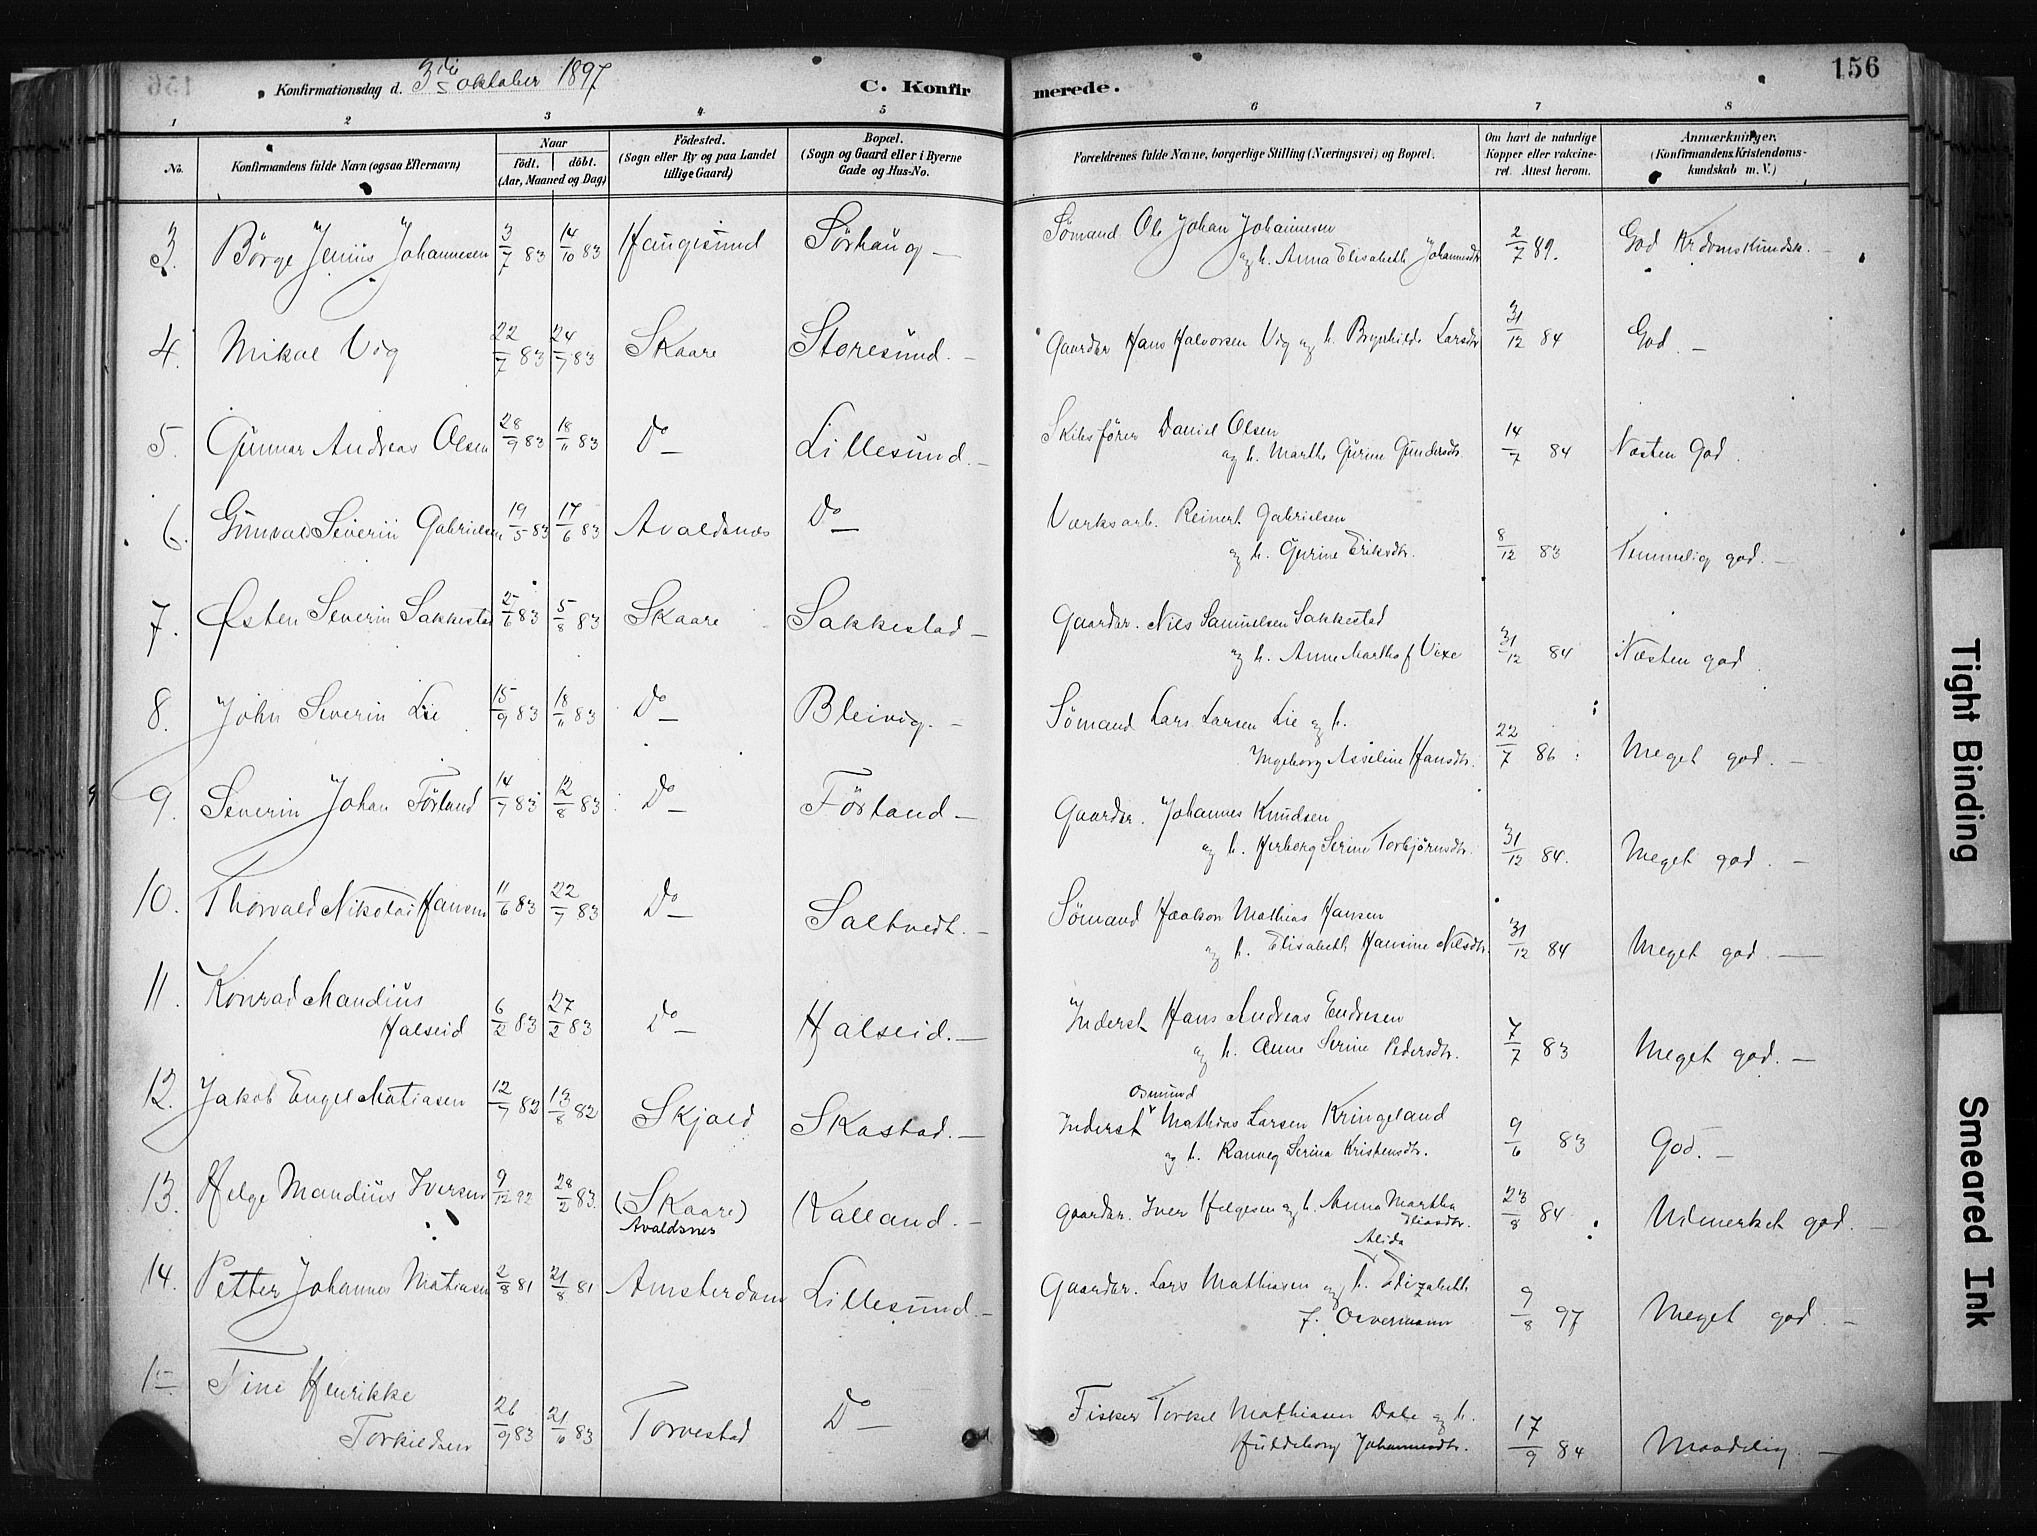 156
Konfirmationsdag d. 3die oktober 1897
C. Konfirmerede.
1 2 3 4 5 6 7 8
No.
Konfirmandens fulde Navn (ogsaa Efternavn)
Naar
födt. döbt.
(Aar, Maaned og Dag)
Födested.
(Sogn eller By og paa Landet
tillige Gaard)
Bopæl.
(Sogn og Gaard eller i Byerne
Gade og Hus-No.
Forældrenes fulde Navne, borgerlige Stilling (Næringsvei) og Bopæl.
Om havt de naturlige
Kopper eller vakcine-
ret. Attest herom.
Anmærkninger.
(Konfirmandens Kristendoms-
kundskab m. V.)
3. Börge Jenius Johannesen 3/7 83 14/10 83 Haugesund Sörhaug – Sömand Ole Johan Johannesen
og h. Anna Elisabeth Johannesdtr 2/7 89. God Krdomskundsk. –
4. Mikal Vig 22/7 83 24/7 83 Skaare Storesund. – Gaardbr Hans Halvorsen Vig og h. Brynhilde Larsdtr 31/12 84 God. –
5. Gunnar Andreas Olsen 28/9 83 18/11 83 Do – Lillesund. – Skibsförer Daniel Olsen
og h. Marthe Gurine Gundersdtr. 14/7 84 Næsten God.
6. Gunvald Severin Gabrielsen 19/5 83 17/6 83 Avaldsnæs Do – Værksarb. Reinert Gabrielsen
og h. Gurine Eriksdtr. 8/12 83 Temmelig god. –
7. Østen Severin Sakkestad 25/6 83 5/8 83 Skaare Sakkestad – Gaardbr. Nils Samuelsen Sakkestad
og h. Anne Martha f Vixe 31/12 84 Næsten god
8. John Severin Lie 15/9 83 18/11 83 Do – Bleivig. – Sömand Lars Larsen Lie og h.
Ingeborg Asseline Hansdtr. 22/7 86 Meget god. –
9. Severin Johan Förland 14/7 83 12/8 83 Do – Förland – Gaardbr. Johannes Knudsen
og h. Herborg Serine Torbjörnsdtr. 31/12 84. Meget god. –
10. Thorvald Nikolai Hansen 11/6 83 22/7 83 Do – Saltvedt. – Sömand Haakon Mathias Hansen
og h. Elisabeth Hansine Nilsdtr. 31/12 84 Meget god. –
11. Konrad Mandius
Halseid 6/2 83 27/2 83 Do – Halseid. – Inderst Hans Andreas Endresen
og h. Anne Serine Pedersdtr. 7/7 83 Meget god. –
12. Jakob Engel Matiasen 12/7 82 13/8 82 Skjold Skastad. – Osmund
Inderst Mathias Larsen Kringeland
og h. Ranveg Serina Kristensdtr. 9/6 83 God. –
13. Helge Mandius Iversen 9/12 92 28/2 83. (Skaare)
Avaldsnes Kalland. – Gaardbr. Iver Helgesen og h. Anna Martha
Eliasdtr. 23/8 84 Udmerket god. –
14. Petter Johannes Matiasen 2/8 81 21/8 81 Amsterdam Lillesund – Alida
Gaardbr. Lars Mathiasen og h. Elizabeth
f. Oevermann 9/8 97 Meget god. –
15. Tine Henrikke
Torkildsen 26/9 83 21/6 83 Torvestad Do – Fisker Torkel Mathiasen Dale og h.
Huldeborg Johannesdtr. 17/9 84 Maadelig. –
Tight Binding
Smeared Ink